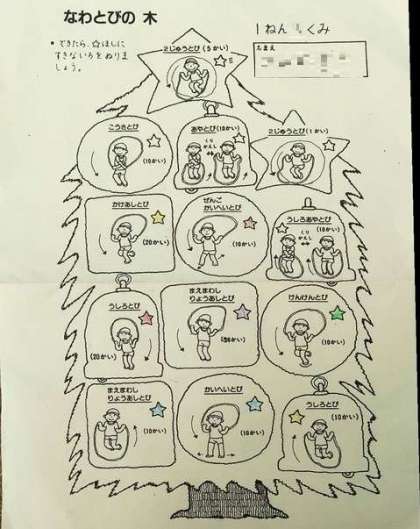 なわとびの 木
1ねん くみ
なまえ
・できたら、☆ほしに
すきないろをぬりま
しょう。
2じゅうとび(5かい)
こうさとび
(10かい)
あやとび(10かい)
くり
かえし
2じゅうとび(1かい)
かけあしとび
(20かい)
ぜんご
かいへいとび
(10かい)
うしろあやとび
(10かい)
くり
かえし
うしろとび
(20かい)
まえまわし
りょうあしとび
けんけんとび
(10かい)
まえまわし
りょうあしとび
(10かい)
かいへいとび
(10かい)
うしろとび
(10かい)